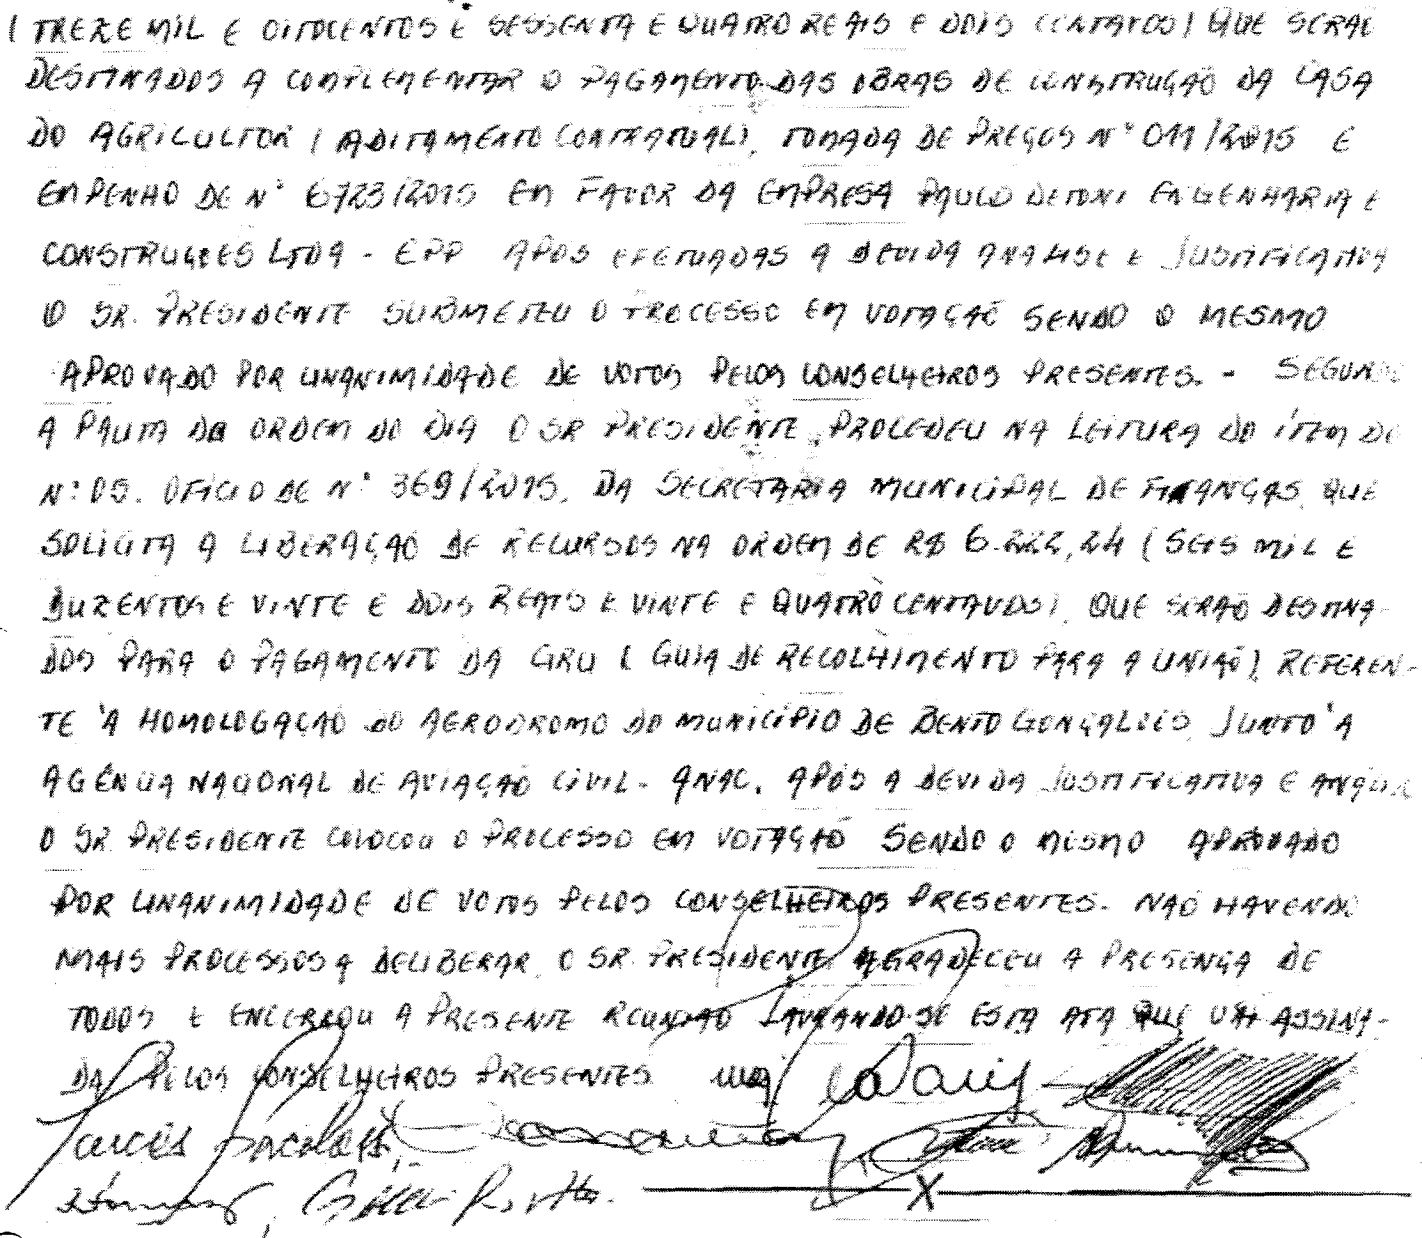 (TREZE MIL E OITOCENTOS E SESSENTA E QUATRO REAIS E DOIS CENTAVOS) QUE SERÃO
DESTINADOS A COMPLEMENTAR O PAGAMENTO DAS OBRAS DE CONSTRUÇÃO DA CASA
DO AGRICULTOR (ADITAMENTO CONTRATUAL), TOMADA DE PREÇOS Nº 011/2015 E
EMPENHO DE Nº 6723/2015 EM FAVOR DA EMPRESA PAULO DETONI ENGENHARIA E
CONSTRUÇÕES LTDA - EPP APÓS EFETUADAS A DEVIDA ANALISE E JUSTIFICATIVA
O SR. PRESIDENTE SUBMETEU O PROCESSO EM VOTAÇÃO SENDO O MESMO
APROVADO POR UNANIMIDADE DE VOTOS PELOS CONSELHEIROS PRESENTES. - SEGUNDO
A PAUTA DA ORDEM DO DIA O SR PRESIDENTE, PROCEDEU NA LEITURA DO ÍTEM DE
Nº 05. OFÍCIO DE Nº 369/2015, DA SECRETARIA MUNICIPAL DE FINANÇAS, QUE
SOLICITA A LIBERAÇÃO DE RECURSOS NA ORDEM DE R$ 6.222,24 (SEIS MIL E
DUZENTOS E VINTE E DOIS REAIS E VINTE E QUATRO CENTAVOS), QUE SERÃO DESTINA-
DOS PARA O PAGAMENTO DA GRU (GUIA DE RECOLHIMENTO PARA A UNIÃO), REFEREN-
TE À HOMOLOGAÇÃO DO AERODROMO DO MUNICÍPIO DE BENTO GONÇALVES, JUNTO À
AGÊNCIA NACIONAL DE AVIAÇÃO CIVIL - ANAC. APÓS A DEVIDA JUSTIFICATIVA E ANÁLISE
O SR PRESIDENTE COLOCOU O PROCESSO EM VOTAÇÃO SENDO O MESMO APROVADO
POR UNANIMIDADE DE VOTOS PELOS CONSELHEIROS PRESENTES. NÃO HAVENDO
MAIS PROCESSOS A DELIBERAR, O SR. PRESIDENTE AGRADECEU A PRESENÇA DE
TODOS E ENCERROU A PRESENTE REUNIÃO LAVRANDO-SE ESTA ATA QUE VAI ASSINA-
DA PELOS CONSELHEIROS PRESENTES
X